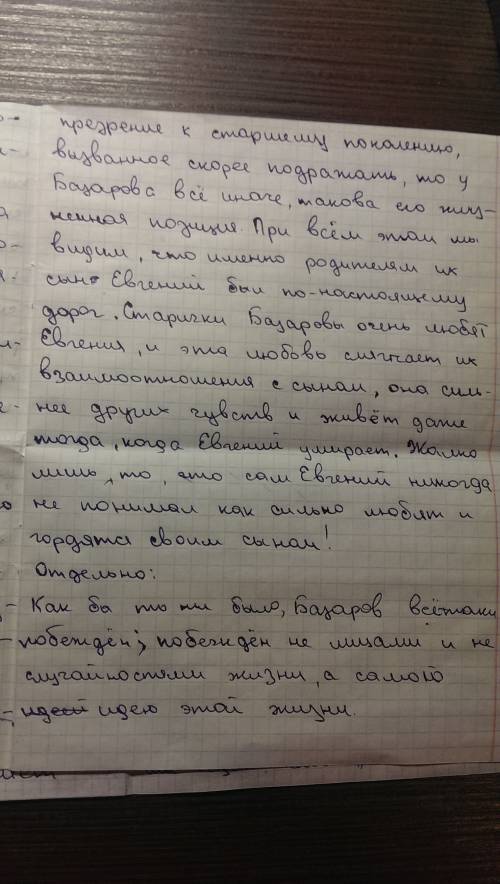 презрение к старшему поколению,
вызванное скорее подражать, то у
Базарова всё иначе, такова его жиз-
ненная позиция. При всём этом мы
видим, что именно родителям их
сын Евгений был по-настоящему
дорог. Старички Базаровы очень любят
Евгения, и эта любовь смягчает их
взаимоотношения с сыном, она силь-
нее других чувств и живёт даже
тогда, когда Евгений умирает. Жалко
лишь, то, что сам Евгений никогда
не понимал как сильно любят и
гордятся своим сыном!
Отдельно:
Как ба то ни было, Базаров всётаки
побеждён; побеждён не лицами и не
случайностями жизни, а самою
идею этой жизни.